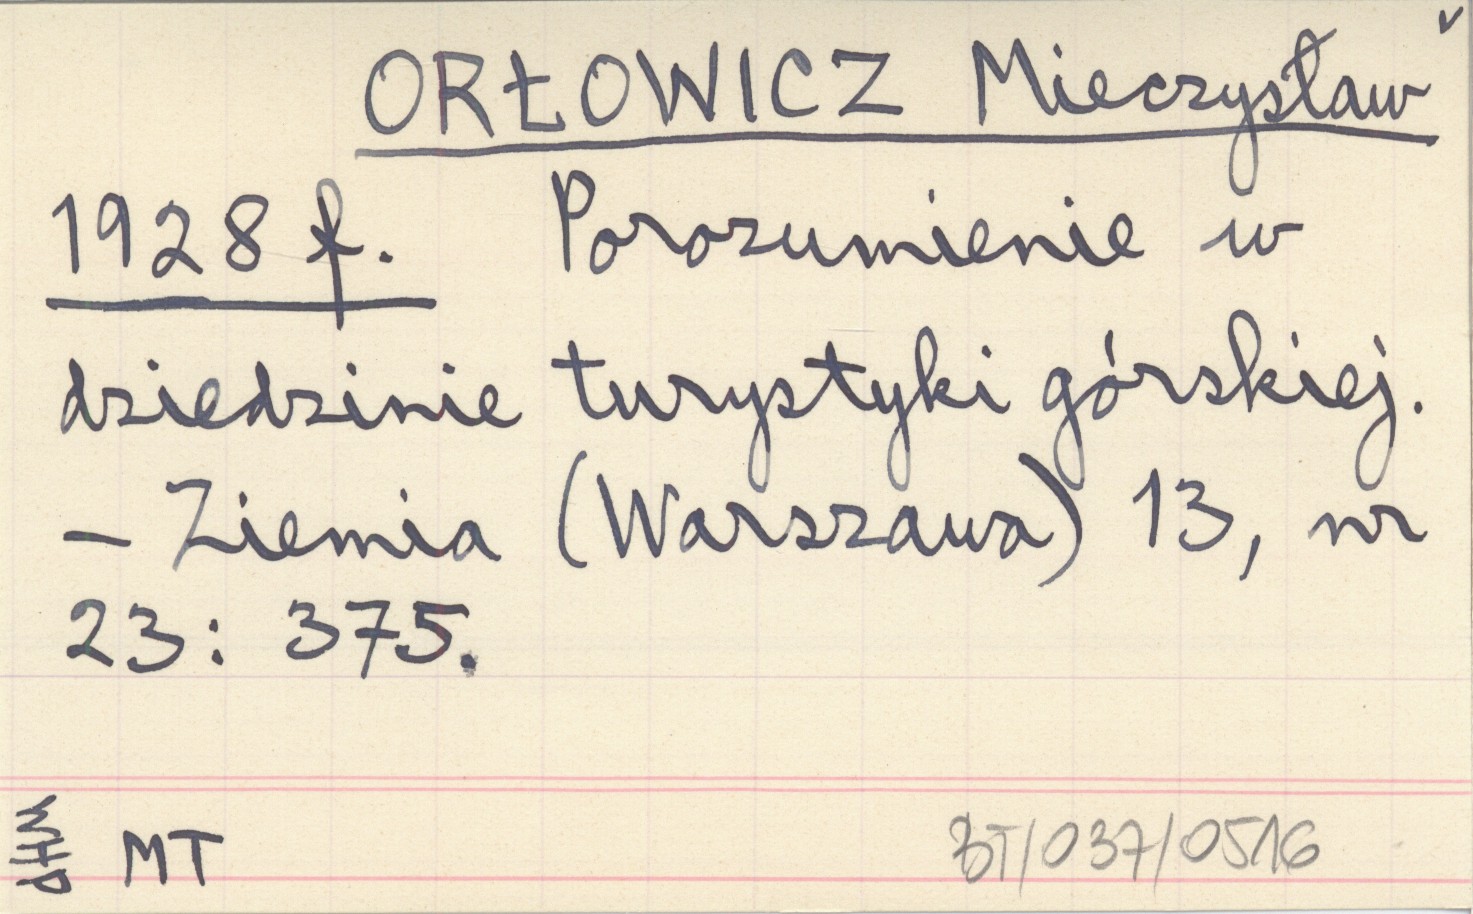 ORŁOWICZ Mieczysław
1928 f. Porozumienie w
dziedzinie turystyki górskiej.
– Ziemia (Warszawa) 13, nr
23: 375.
MT
BT/037/0516